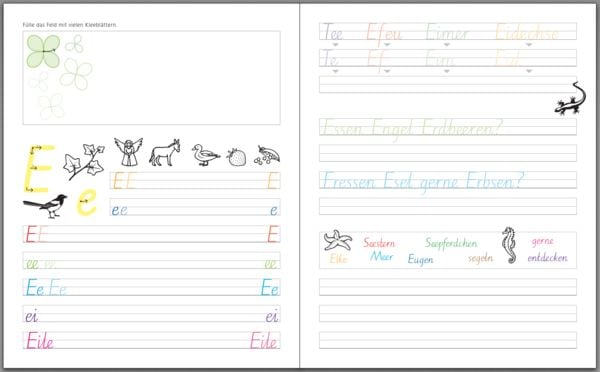 Fülle das Feld mit vielen Kleeblättern.
E
EE E
e
ee e
EE E
ee ee ee
Ee Ee Ee
ei ei
Eile Eile
Tee Efeu Eimer Eidechse
Te Ef Eim Eid
Essen Engel Erdbeeren?
Fressen Esel gerne Erbsen?
Seestern Seepferdchen gerne
Elke Meer Eugen segeln entdecken